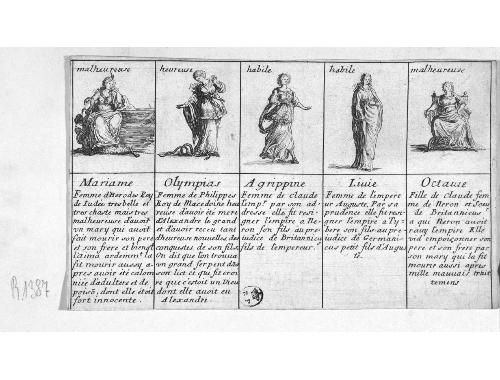 malheureuse
heureuse
habile
habile
malheureuse
Mariame
Femme d'Herodes Roy
de Judée tres belle et
tres chaste mais tres
malheureuse d'avoir
un mary qui avoit
fait mourir son pere
et son frere et bien qu'il
l'aima ardemmt la
fit mourir aussy a-
pres avoir eté calom
niée d'adultere et de
poisõ, dont elle étoit
fort innocente.
Olympias
Femme de Philippes
Roy de Macedoine heu
reuse d'avoir ete mere
d'Alexandre le grand
et d'avoir receu tant
d'heureuse nouvelles des
conquestes de son fils
On dit que l'on trouva
un grand serpent dãs
son lict ce qui fit croi
re que c'estoit un Dieu
dont elle avoit eu
Alexandre
Agrippine
Femme de claude
emp.r par son ad
dresse elle fit resi
gner l'empire a Ne
ron son fils au pre
iudice de Britanicus
fils de l'empereur.
Livie
Femme de l'empere
ur Auguste, Par sa
prudence elle fit resi
gner l'empire a Ty
bere son fils au pre
iudice de Germani
cus petit fils d'Augus
te.
Octavie
Fille de claude fem
me de Neron et soeur
de Britanicus
a qui Neron avoit
ravy l'empire Elle
vid empoiçonner son
pere et son frere par
son mary qui la fit
mourir aussi apres
mille mauvais trait
temens
R 1387